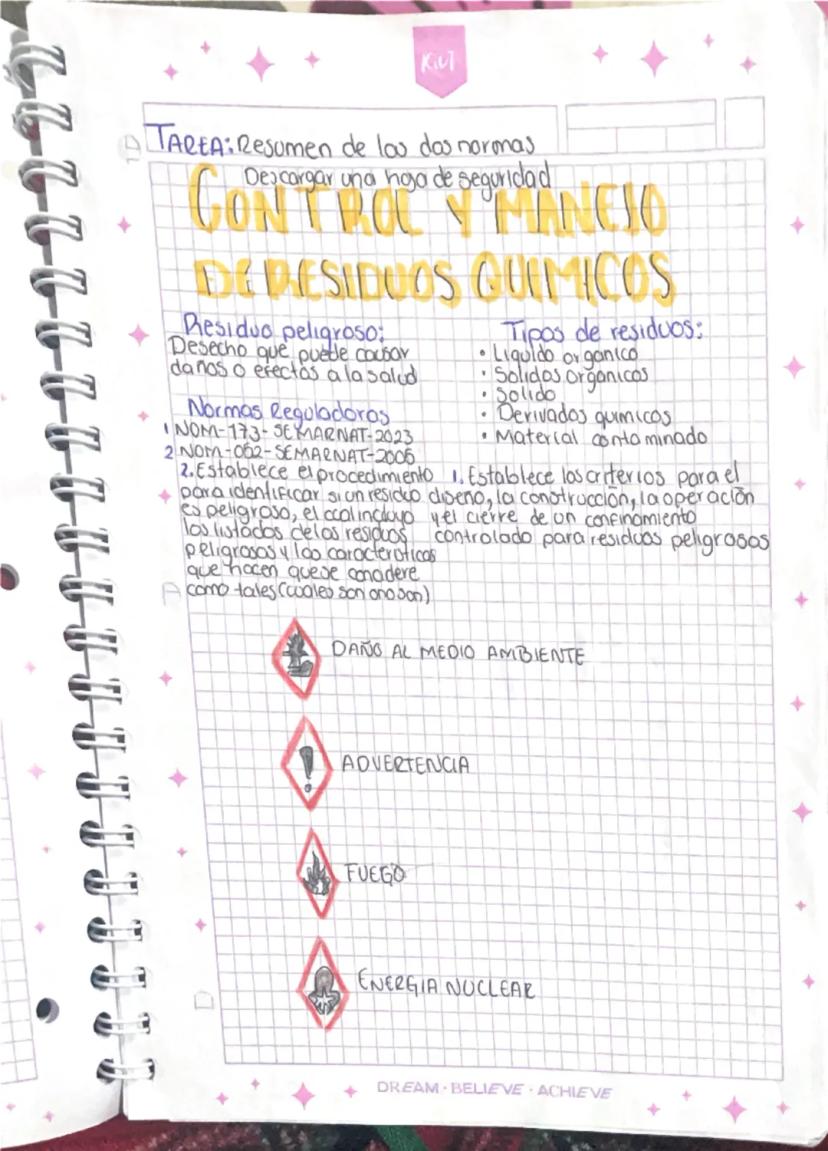 KiUT
TAREA: Resumen de las dos normas
Descargar una hoja de seguridad
CONTROL Y MANEJO
DE RESIDUOS QUIMICOS
Residuo peligroso:
Desecho que puede causar
daños o efectos a la salud
Tipos de residuos:
• Liquido organico
• Solidos organicos
• Solido
• Derivados quimicos
• Material contaminado
Normas Reguladoras
1 NOM-173-SEMARNAT-2023
2 NOM-052-SEMARNAT-2005
2. Establece el procedimiento
para identificar si un residuo
es peligroso, el cual incluyo
los listados de los residuos
peligrosos y las caracteristicas
que hacen que se
como tales (cuales son o no son)
1. Establece los criterios para el
diseño, la construcción, la operación
y el cierre de un confinamiento
controlado para residuos peligrosos
DAÑO AL MEDIO AMBIENTE
ADVERTENCIA
FUEGO
ENERGIA NUCLEAR
DREAM · BELIEVE · ACHIEVE